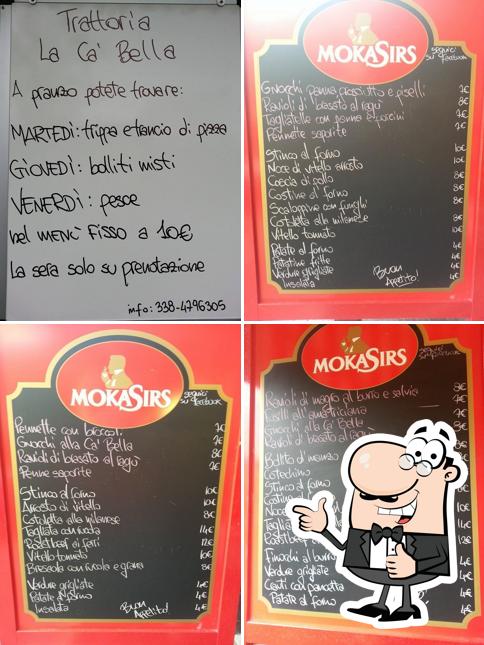 Trattoria
La Ca' Bella
A pranzo potete trovare:
MARTEDÌ: trippa e trancio di pizza
GIOVEDÌ: bolliti misti
VENERDÌ: pesce
nel MENÙ FISSO a 10€
La sera solo su prenotazione
info: 338-4796305
MOKASIRS
seguici su facebook
Gnocchi panna, prosciutto e piselli 7€
Ravioli di brasato al ragù 8€
Tagliatelle con panna e porcini 7€
Pennette saporite 7€
Stinco al forno 10€
Noce di vitello arrosto 10€
Coscia di pollo 8€
Costine al forno 8€
Scaloppine con funghi 8€
Cotoletta alla milanese 8€
Vitello tonnato 10€
Patate al forno 4€
Patatine fritte 4€
Verdure grigliate 4€
Insalata 4€
Buon Appetito!
MOKASIRS
seguici su facebook
Pennette con broccoli 7€
Gnocchi alla Ca' Bella 7€
Ravioli di brasato al ragù 8€
Penne saporite 7€
Stinco al forno 10€
Arrosto di vitello 10€
Cotoletta alla milanese 8€
Tagliata con rucola 14€
Roastbeef ai ferri 12€
Vitello tonnato 10€
Bresaola con rucola e grana 8€
Verdure grigliate 4€
Patate al forno 4€
Insalata 4€
Buon Appetito!
MOKASIRS
seguici su facebook
Ravioli di magro al burro e salvia 8€
Fusilli all'amatriciana
Gnocchi alla Ca' Bella
Ravioli di brasato al ragù
Bollito di manzo
Cotechino
Stinco al forno
Costine
Noce
Tagliata
Roastbeef
Finocchi al burro
Verdure grigliate 4€
Coste con pancetta 4€
Patate al forno 4€